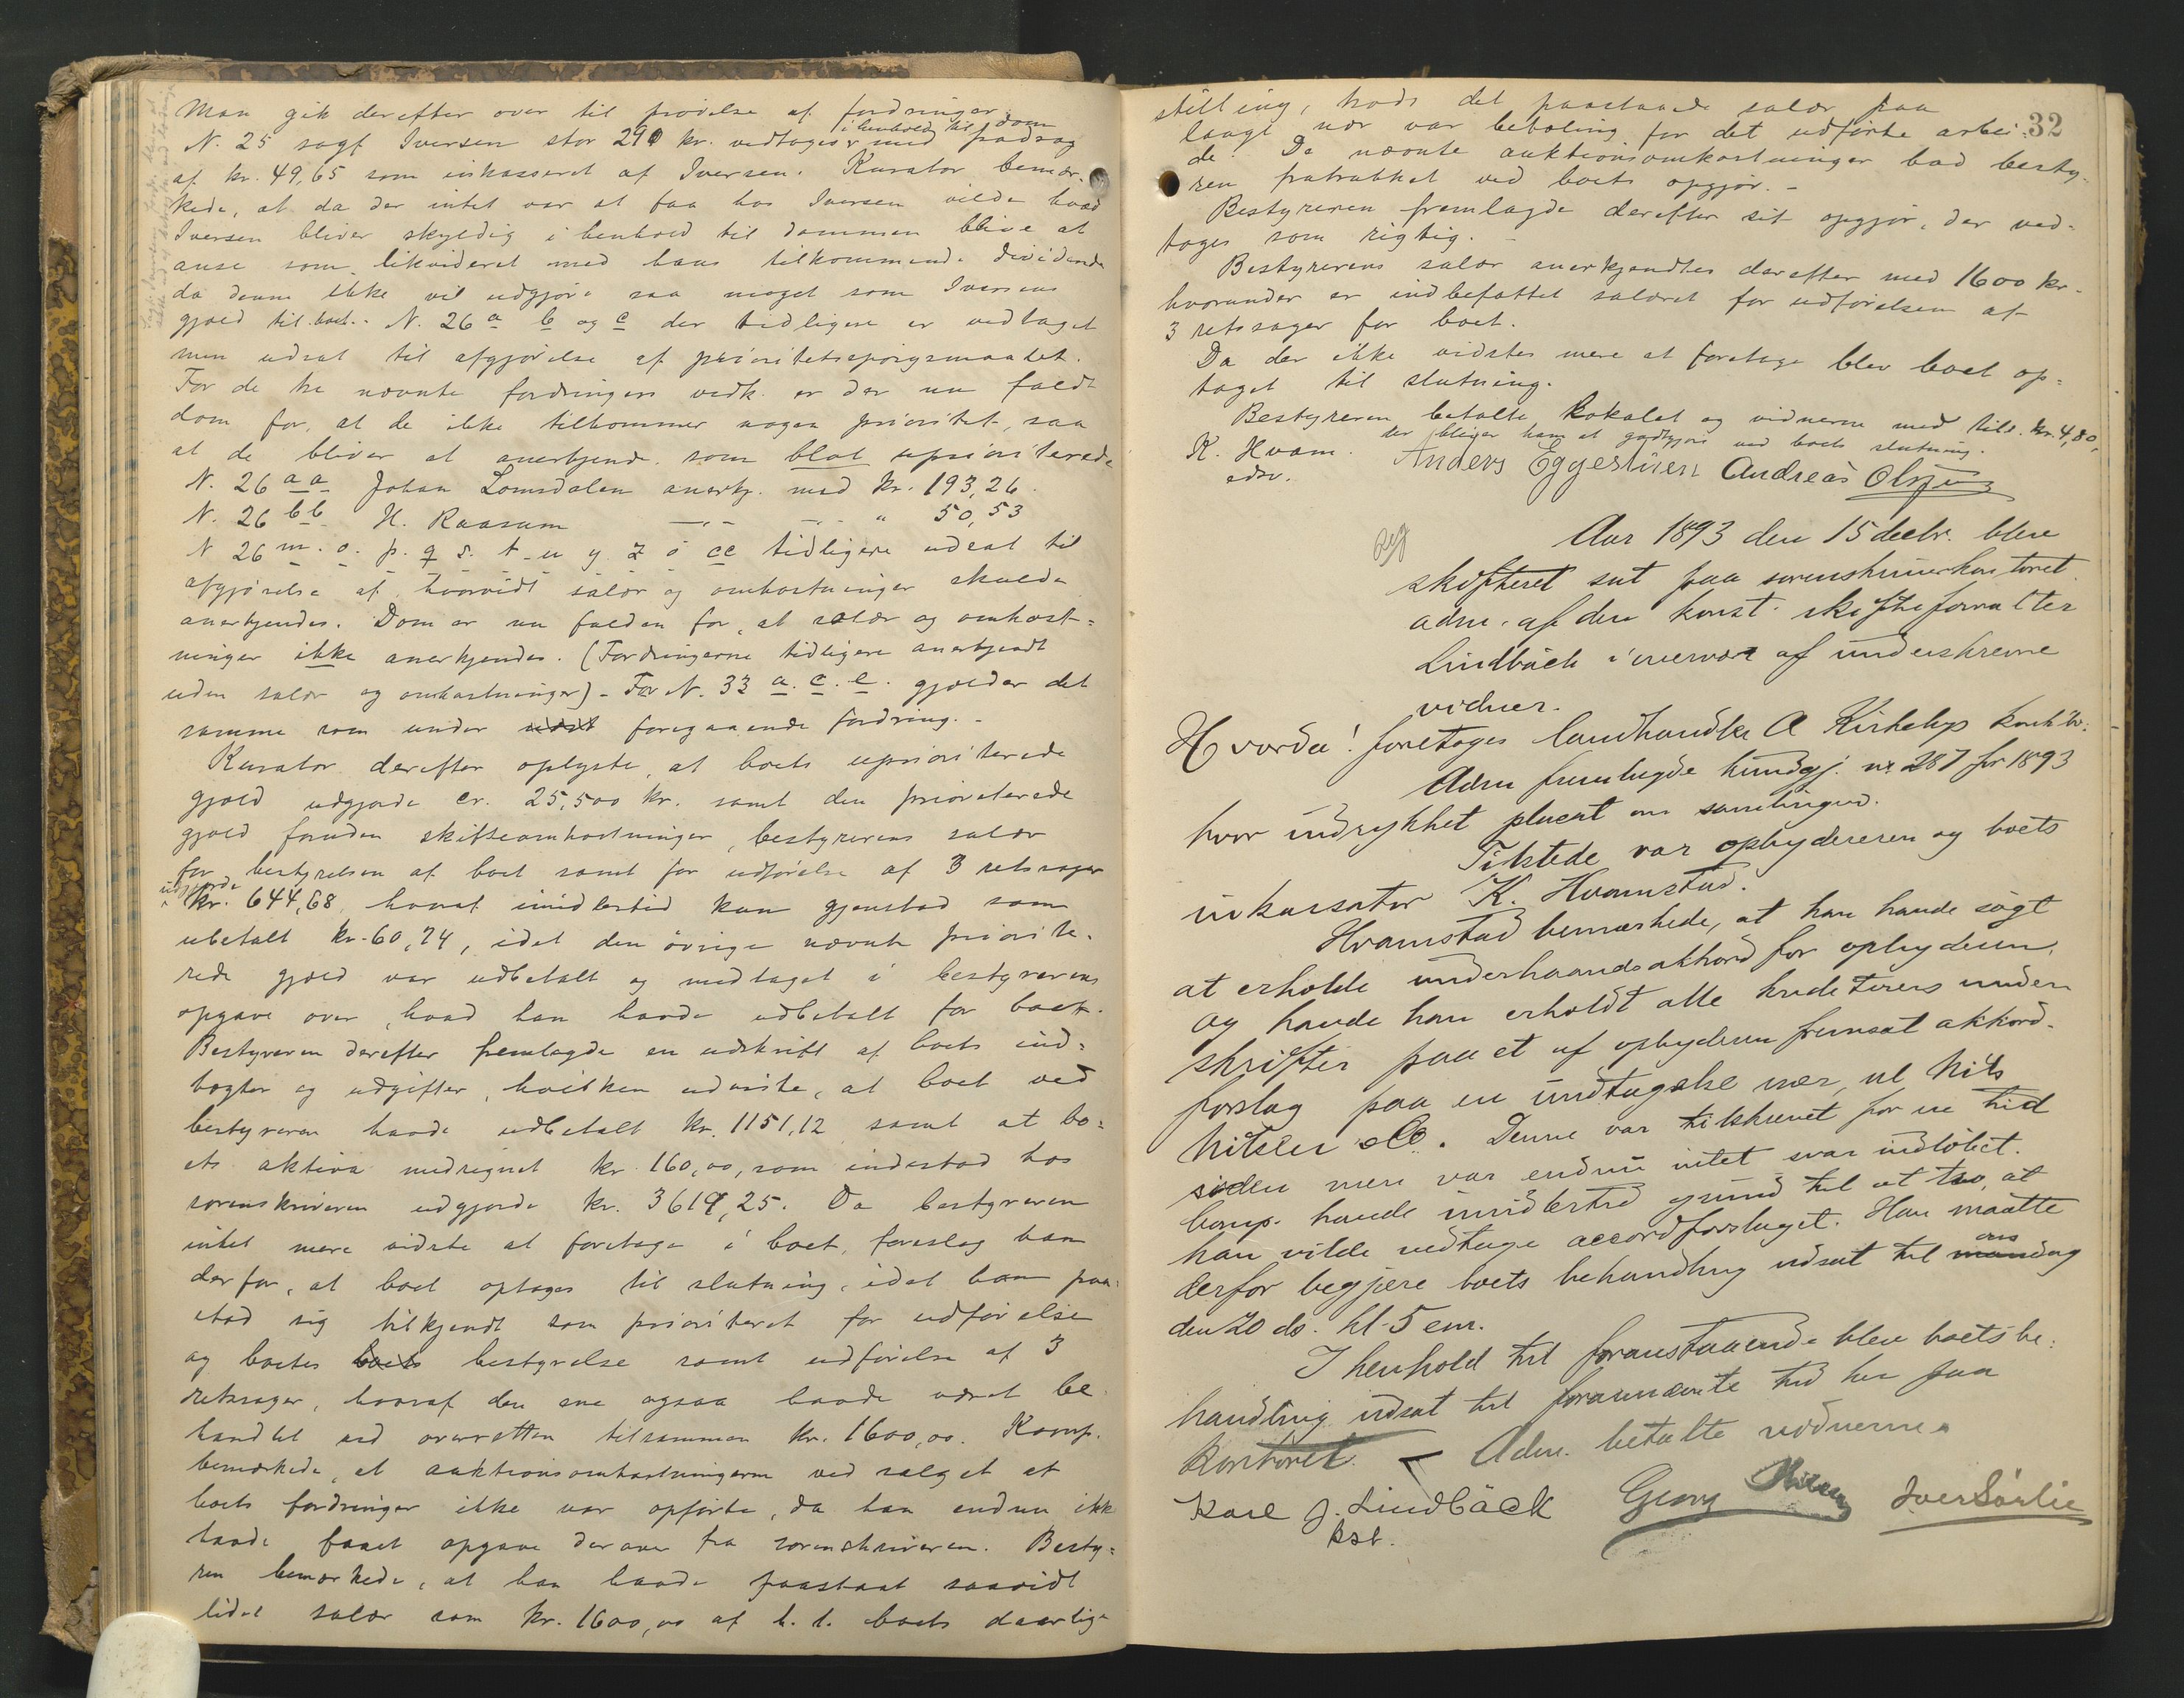 Man gik derefter over til prøvelse af fordringer.
N. 25 sagf Iversen stor 290 kr. vedtoges i henhold til dom med fradrag
af kr. 49,65 som inkasseret af Iversen. Kurator bemær-
kede, at da der intet var at faa hos Iversen vilde hvad
Iversen bliver skyldig i henhold til dommen blive at
anse som likvideret med hans tilkommende dividende
da denne ikke vil udgjøre saa meget som Iversens
gjæld til boet. - N. 26 a b og c der tidligere er vedtaget
men udsat til afgjørelse af prioritetsspørgsmaalet.
For de tre nævnte fordringers vedk. er der nu faldt
dom for, at de ikke tilkommer nogen prioritet, saa
at de bliver at anerkjende som blot uprioriterede
N. 26 aa Johan Lomsdalen anerkj. med kr. 193,26.
N. 26 bb H. Raasum —.— —.— " 50,53
N 26 m. o. p. q s. t u y z ö cc tidligere udsat til
afgjørelse af, hvorvidt salær og omkostninger skulde
anerkjendes. Dom er nu falden for, at salær og omkost-
ninger ikke anerkjendes. (Fordringerne tidligere anerkjendt
uden salær og omkostninger) - For N. 33 a. c. e. gjælder det
samme som under foregaaende fordring. -
Kurator derefter oplyste, at boets uprioriterede
gjæld udgjorde cr. 25,500 kr. samt den prioriterede
gjæld foruden skifteomkostninger, bestyrerens salær
for bestyrelsen af boet samt for udførelse af 3 retssager
udgjorde kr. 644,68, hvoraf imidlertid kun gjenstod som
ubetalt kr. 60,74, idet den øvrige nævnte priorite-
rede gjæld var udbetalt og medtaget i bestyrerens
opgave over, hvad han havde udbetalt for boet.
Bestyreren derefter fremlagde en udskrift af boets ind-
tægter og udgifter, hvilken udviste, at boet ved
bestyreren havde udbetalt kr. 1151,12 samt at bo-
ets aktiva medregnet kr. 160,00, som indestod hos
sorenskriveren udgjorde kr. 3619,25. Da bestyreren
intet mere vidste at foretage i boet, foreslog han
derfor, at boet optages til slutning, idet han paa-
stod sig tilkjendt som prioriteret for udførelse
og boetes boets bestyrelse samt udførelse af 3
retssager, hvoraf den ene ogsaa havde været be-
handlet ved overretten tilsammen kr. 1600,00. Komp.
bemærkede, at auktionsomkostningerne ved salget af
boets fordringer ikke var opførte, da han endnu ikke
havde faaet opgave derover fra sorenskriveren. Besty-
ren bemærkede, at han havde paastaat saavidt
lidet salær som kr. 1600,00 af h. t. boets daarlige
32
stilling, trods det paastaaede salær paa
langt nær var betaling for det udførte arbei-
de. De nævnte auktionsomkostninger bad besty-
ren fratrukket ved boets opgjør. -
Bestyreren fremlagde derefter sit opgjør, der ved-
toges som rigtig. -
Bestyrerens salær anerkjendtes derefter med 1600 kr.
hvorunder er indbefattet salæret for udførelsen af
3 retssager for boet.
Da der ikke vidstes mere at foretage blev boet op-
taget til slutning.
Bestyreren betalte lokalet og vidnerne med tils. kr. 4,80,
der bliver ham at godtgjøre ved boets slutning.
K. Hvam. Anders Eggestuen Andreas Olsen
edsv.
Reg
Aar 1893 den 15 decbr. blev
skifteret sat paa sorenskriverkontoret
adm. af den konst. skifteforvalter
Lindbäck i overvær af underskrevne
vidner.
Hvorda! foretoges landhandler A Kirkebys konkbo.
Adm fremlagde kundgj. nr 287 for 1893
hvor indrykket placat om samlingen.
Tilstede var opbyderen og boets
inkassator K. Hvamstad.
Hvamstad bemærkede, at han havde søgt
at erholde underhaandsakkord for opbyderen,
og havde han erholdt alle kreditorers under-
skrifter paa et af opbyderen fremsat akkord-
forslag paa en undtagelse nær, nl Nils
Nilsen & Co. Denne var tilskrevet for en tid
siden men var endnu intet svar indløbet.
Comp. havde imidlertid grund til at tro, at
han vilde vedtage accordforslaget. Han maatte
derfor begjære boets behandling udsat til mandag ons
den 20 ds. kl. 5 em.
I henhold til foranstaaende blev boets be-
handling udsat til forannævnte tid her paa
kontoret. — Adm. betalte vidnerne.
Karl J. Lindbäck Georg Nilsen Iver Sørlie
kst.